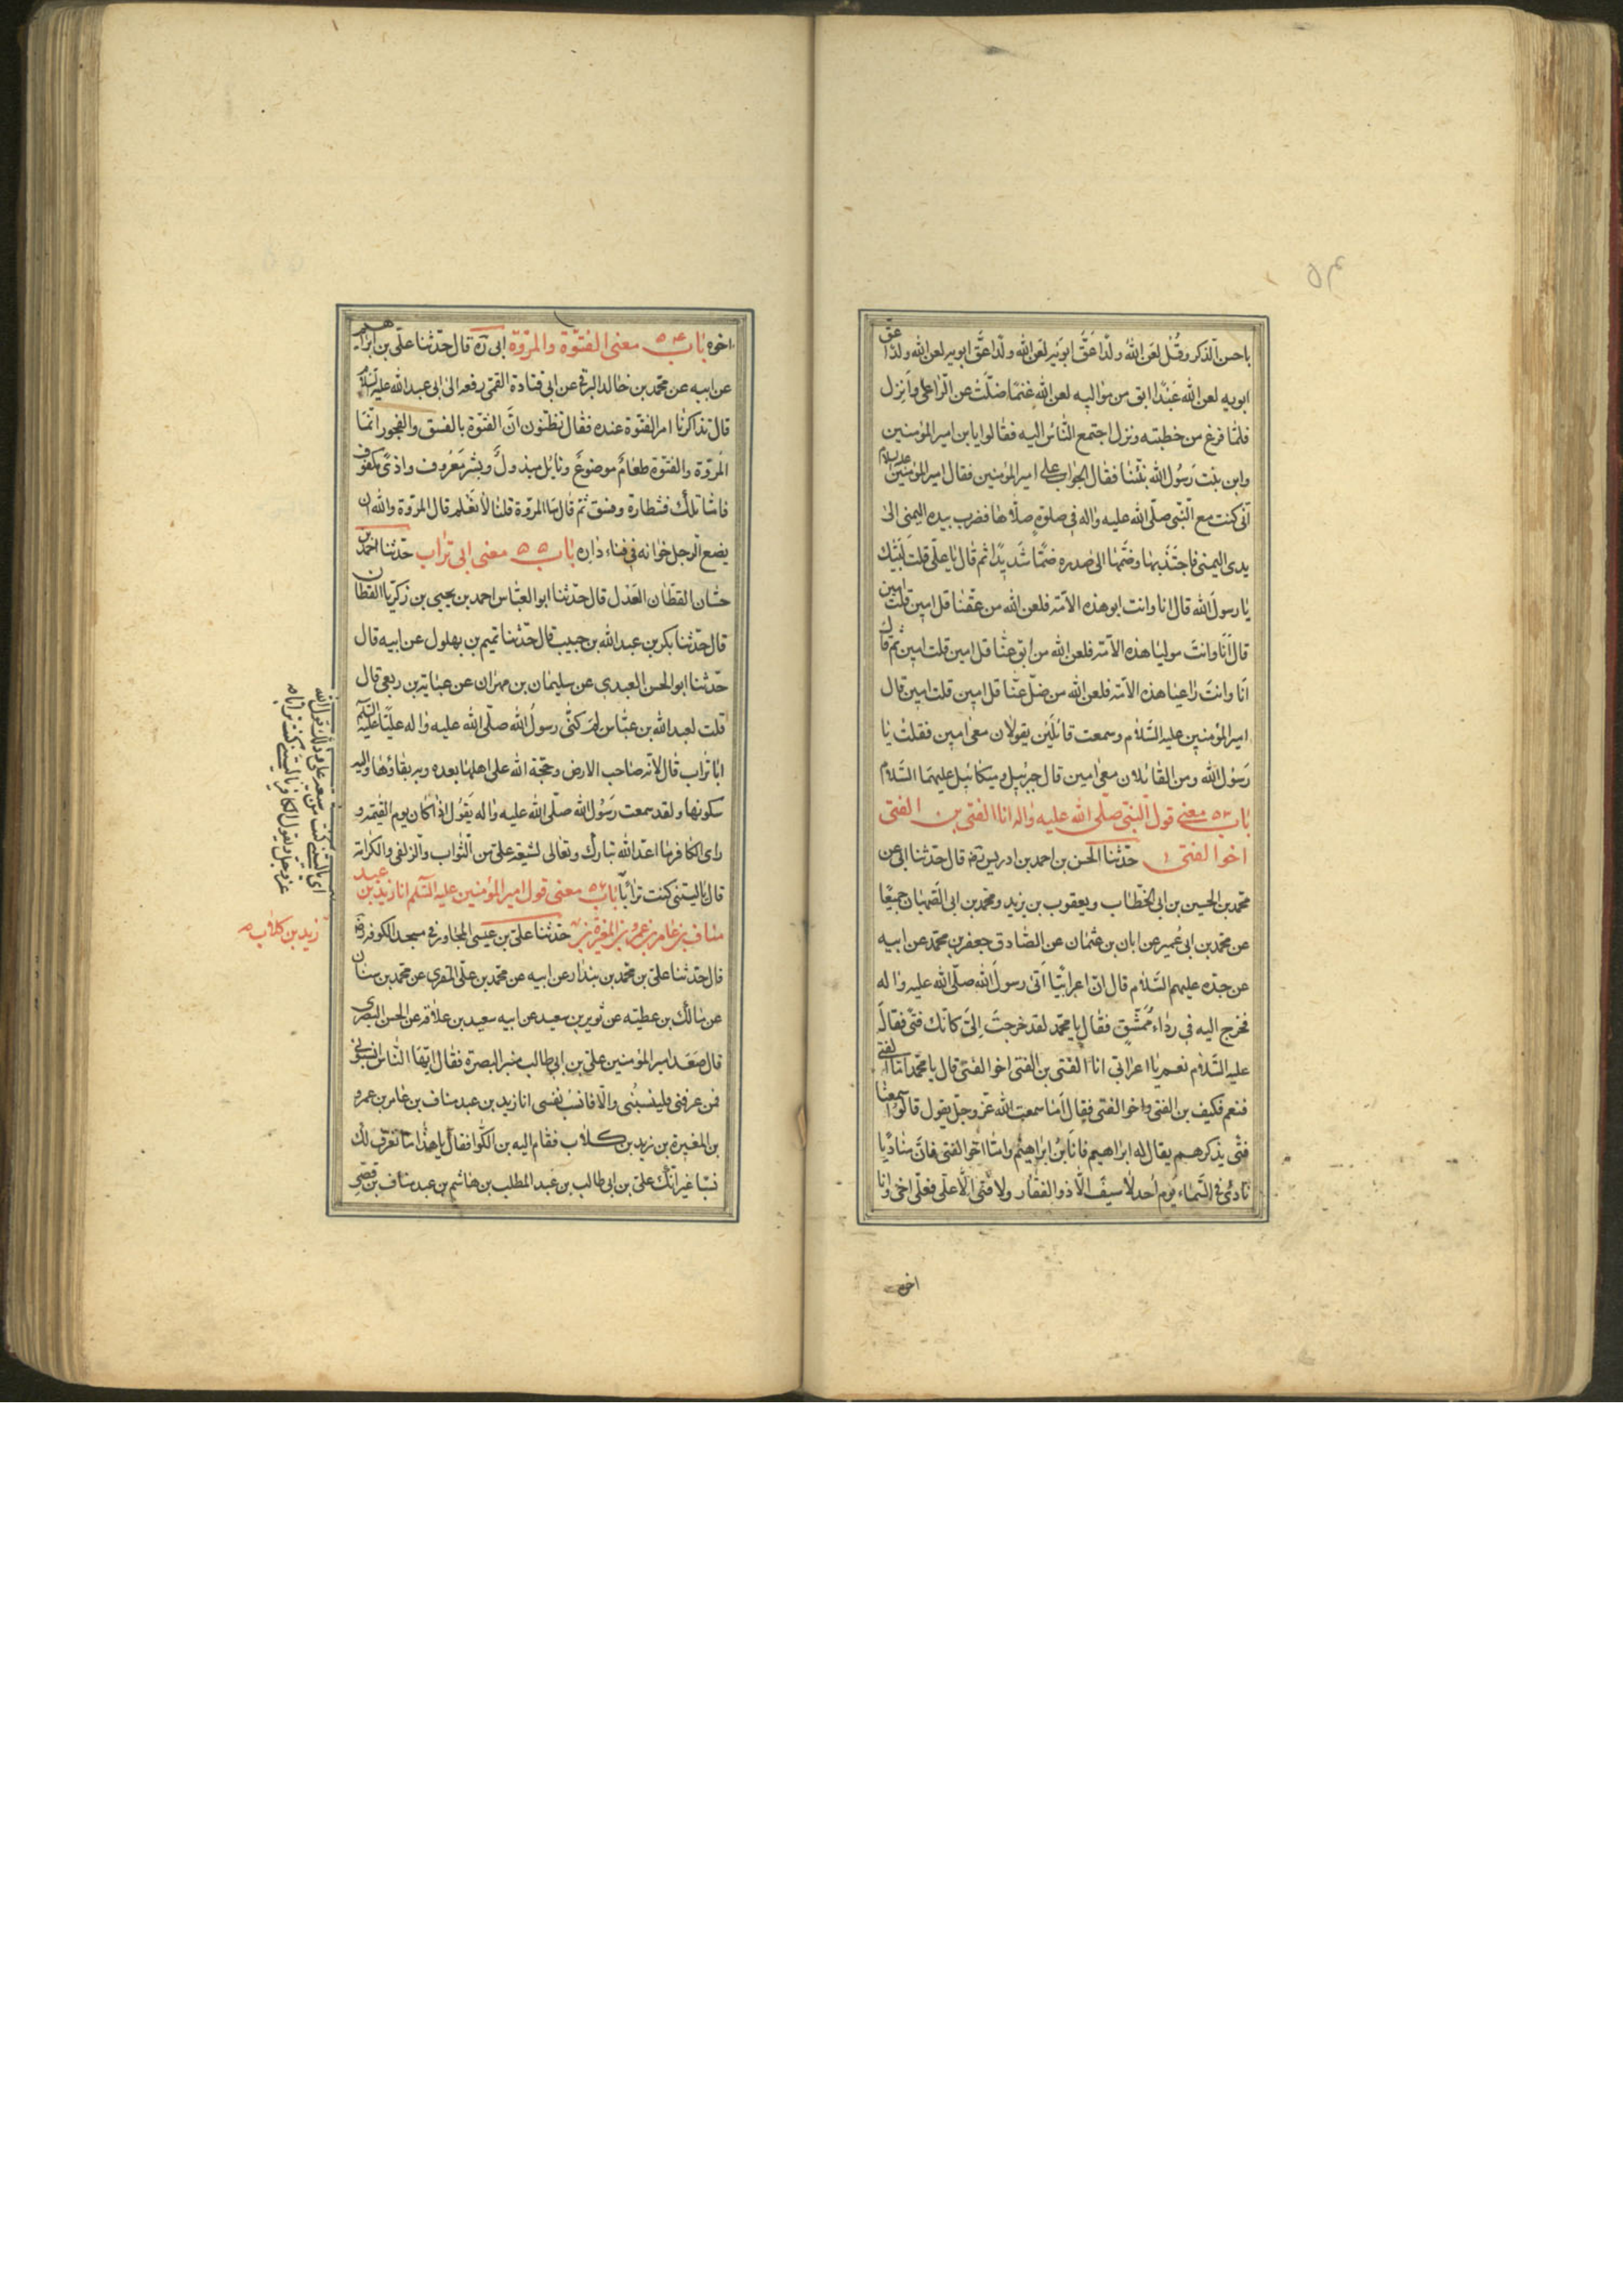 باحسن الذكر وقُل لعَن اللهُ ولدًا عَقَّ ابوَيْهِ لعَن الله ولدًا عقَّ ابويه لعن الله ولدًا عقّ
ابويه لعن الله عَبْدًا ابق من مَواليه لعن الله غنمًا ضلّت عن الرّاعى وَانزِل
فلمّا فرغ من خطبته ونزل اجتمع النّاسُ اليه فقالوا يابن امير المؤمنين
وابن بنت رَسُول الله نبّئنا فقال الجواب على امير المؤمنين فقال امير المؤمنين عليه السلام
انّى كنت مع النّبى صلّى الله عليه واله فى صلوةٍ صلّاها فضرب بيده اليمنى الى
يدى اليمنى فاجتذبها وضمّها الى صدره ضمًّا شَديدًا ثم قال يا علّى قلت لبّيك
يا رسول الله قال انا وانت ابو هذه الامّة فلعن الله من عقّنا قل امين قلت امين
قال اَنَا وانت موليا هذه الامّة فلعن الله من اَبق عنّا قل امين قلت امين ثم قال
اَنَا وانت راعيا هذه الامّة فلعن الله من ضلّ عنّا قل امين قلت امين قال
امير المؤمنين عليه السَّلام وسمعت قائلَيْن يقولان معى امين فقلت يا
رَسُول الله ومن القائلان معى امين قال جبرئيل وميكائيل عليهما السَّلام
باب ٥٣ معنى قول النّبى صلّى الله عليه واله انا الفتى بن الفتى
اخو الفتى حدّثنا الحسن بن احمد بن ادريس ره قال حدّثنا ابى عن
محمد بن الحسين بن ابى الخطّاب ويعقوب بن يزيد ومحمد بن ابى الصهبان جميعًا
عن محمّد بن ابى عُمير عن ابان بن عثمان عن الصّادق جعفر بن محمّد عن ابيه
عن جدّه عليهم السَّلام قال انّ اعرابيًّا اَتى رسولَ الله صلّى الله عليه واله
فخرج اليه فى رداءٍ مُمَشَّقٍ فقال يا محمّد لقد خرجتَ اِلىَّ كانّك فتًى فقال
عليه السَّلام نعم يا اعرابى انا الفتى بن الفتى اخو الفتى قال يا محمّد امّا الفتى
فنعم فكيف بن الفتى واخو الفتى فقال اَما سمعت الله عزّ وجلّ يقول قالوا سمعنا
فتًى يذكرهم يقال له ابراهيم فانا بنُ ابراهيم وامّا اخو الفتى فانَّ مناديًا
نادى فى السّماء يوم اُحد لا سيف الّا ذو الفقار ولا فتى الّا علّى فعلّى اخى وانا
اخوه
اخوه باب ٥٤ معنى الفتوّة والمروّة ابى ره قال حدّثنا علّى بن ابراهيم
عن ابيه عن محمّد بن خالد البرقى عن ابى قتادة القمّى رفعه الى ابى عبد الله عليه السلام
قال تذاكرنا امر الفتوّة عنده فقال تظنّون انَّ الفتوّة بالفسق والفجور انّما
المروّة والفتوّة طعامٌ موضوعٌ ونايل مبذولٌ وبشر معروف واذىً مكفوف
فامّا تلك فشطارة وفسق ثمّ قال ما المروّة قلنا لا نعلم قال المروّة والله ان
يضع الرجل خوانه فى فناء داره باب ٥٥ معنى ابى تراب حدّثنا احمد بن
حسّان القطّان العَدْل قال حدّثنا ابو العبّاس احمد بن يحيى بن زكريّا القطّان
قال حدّثنا بكر بن عبد الله بن حبيب قال حدّثنا تميم بن بهلول عن ابيه قال
حدّثنا ابو الحسن العبدى عن سليمان بن مهران عن عباية بن ربعى قال
قلت لعبد الله بن عبّاس لِمَ كنّى رسول الله صلّى الله عليه واله عليًّا عليه السلام
ابا تراب قال لانّه صاحب الارض وحجّة الله على اهلها بعده وبه بقاؤها واليه
سكونها ولقد سمعت رَسُول الله صلّى الله عليه واله يقول اذا كان يوم القيمة و
راى الكافر ما اعدّ الله تبارك وتعالى لشيعة علّى من الثّواب والزلفى والكرامة
قال ياليتنى كنت ترابًا باب ٥٦ معنى قول امير المؤمنين عليه السّلم انا زيد بن عبد
مناف بن عامر بن عمرو بن المغيرة بن حدّثنا علّى بن عيسى المجاور فى مسجد الكوفة ره
قال حدّثنا علّى بن محمّد بن بندار عن ابيه عن محمّد بن علّى المقرى عن محمّد بن سنان
عن مالك بن عطيّه عن ثوير بن سعيد عن ابيه سعيد بن علاقة عن الحسن البصرى
قال صَعَد امير المؤمنين علّى بن ابى طالب منبر البصرة فقال ايّها النّاس انسبونى
فمن عرفنى فلينسبُنى والّا فانسب نفسى انا زيد بن عبد مناف بن عامر بن عمرو
بن المغيرة بن زيد بن كلاب فقام اليه بن الكوّا فقال يا هذا ما نعرف لك
نسبًا غير انّك علّى بن ابى طالب بن عبد المطلب بن هاشم بن عبد مناف بن قصى
اى ياليتنى كنت من شيعة على وذلك قول الله
عز وجل ويقول الكافر ياليتنى كنت ترابا
زيد بن كلاب